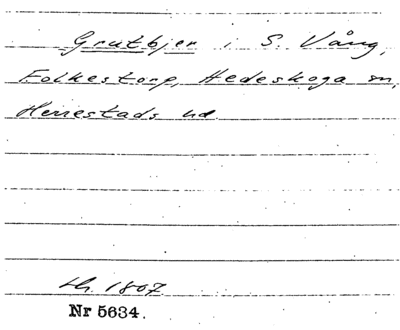 Grutbjer i S. Vång,
Folkestorp, Hedeskoga sn,
Herrestads hd.
th. 1807
Nr 5634.